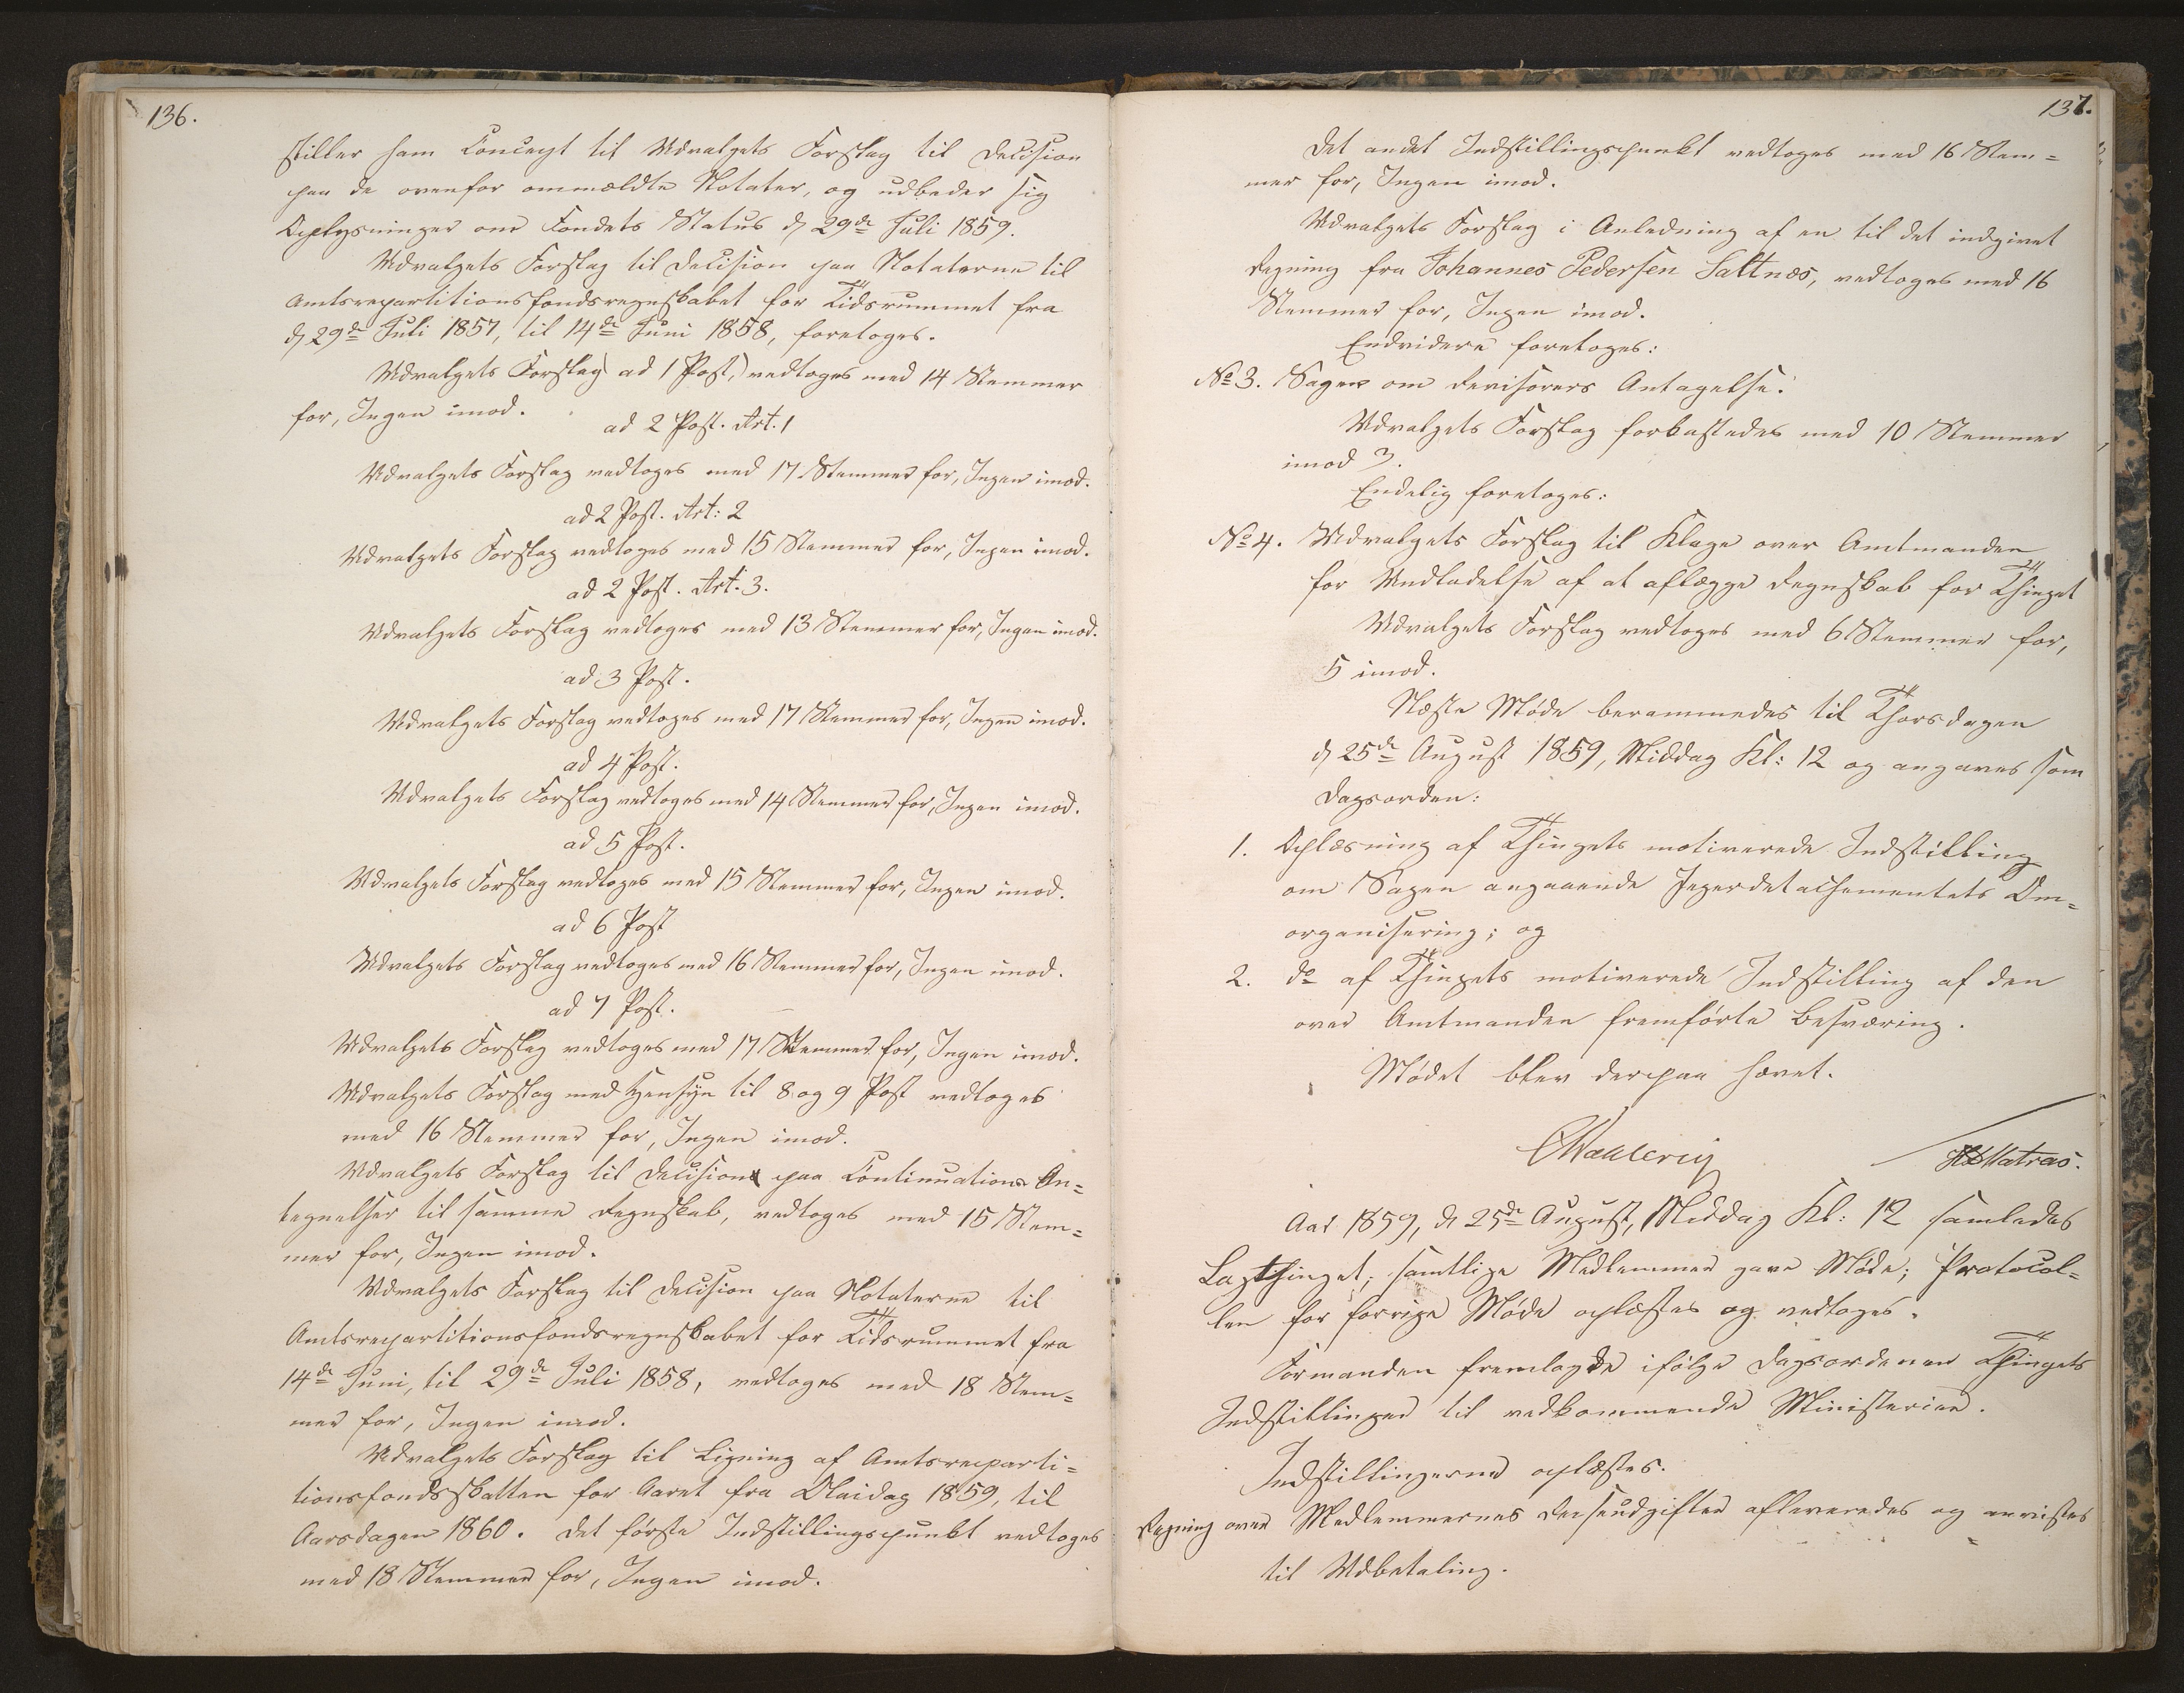 136.
stiller ham Concept til Udvalgets Forslag til Decision
paa de ovenfor ommældte Notater, og udbeder sig
Oplysninger om Fondets Status d 29de Juli 1859.
Udvalgets Forslag til Decision paa Notaterne til
Amtsrepartitionsfondsregnskabet for Tidsrummet fra
d 29de Juli 1857, til 14de Juni 1858, foretoges.
Udvalgets Forslag ad 1 Post, vedtoges med 14 Stemmer
for, Ingen imod.
ad 2 Post. Art. 1
Udvalgets Forslag vedtoges med 17 Stemmer for, Ingen imod.
ad 2 Post. Art: 2
Udvalgets Forslag vedtoges med 15 Stemmer for, Ingen imod.
ad 2 Post. Art: 3.
Udvalgets Forslag vedtoges med 13 Stemmer for, Ingen imod.
ad 3 Post.
Udvalgets Forslag vedtoges med 17 Stemmer for, Ingen imod.
ad 4 Post.
Udvalgets Forslag vedtoges med 14 Stemmer for, Ingen imod.
ad 5 Post.
Udvalgets Forslag vedtoges med 15 Stemmer for, Ingen imod.
ad 6 Post
Udvalgets Forslag vedtoges med 16 Stemmer for, Ingen imod.
ad 7 Post.
Udvalgets Forslag vedtoges med 17 Stemmer for, Ingen imod.
Udvalgets Forslag med Hensyn til 8 og 9 Post vedtoges
med 16 Stemmer for, Ingen imod.
Udvalgets Forslag til Decision paa Continuations An=
tegnelser til samme Regnskab, vedtoges med 15 Stem=
mer for, Ingen imod.
Udvalgets Forslag til Decision paa Notaterne til
Amtsrepartitionsfondsregnskabet for Tidsrummet fra
14de Juni, til 29de Juli 1858, vedtoges med 18 Stem=
mer for, Ingen imod.
Udvalgets Forslag til Ligning af Amtsreparti=
tionsfondsskatten for Aaret fra Olaidag 1859, til
Aarsdagen 1860. Det første Indstillingspunkt vedtoges
med 18 Stemmer for, Ingen imod.
137.
Det andet Indstillingspunkt vedtoges med 16 Stem=
mer for, Ingen imod.
Udvalgets Forslag i Anledning af en til det indgivet
Regning fra Johannes Pedersen Saltnæs, vedtoges med 16
Stemmer for, Ingen imod.
Endvidere foretoges:
No 3. Sagen om Revisorers Antagelse.
Udvalgets Forslag forkastedes med 10 Stemmer
imod 3.
Endelig foretoges:
No 4. Udvalgets Forslag til Klage over Amtmanden
for Undladelse af at aflægge Regnskab for Thinget
Udvalgets Forslag vedtoges med 6 Stemmer for,
5 imod.
Næste Møde berammedes til Thorsdagen
d 25de August 1859, Middag Kl: 12 og angaves som
Dagsorden:
1. Oplæsning af Thingets motiverede Indstilling
om Sagen angaaende Jægerdetachementets Om=
organisering; og
2. do af Thingets motiverede Indstilling af den
over Amtmanden fremførte Besværing.
Mødet blev derpaa hævet.
Matras.
Aar 1859, d 25de August, Middag Kl: 12 samledes
Lagthinget; samtlige Medlemmer gave Møde; Protocol=
len for forrige Møde oplæstes og vedtoges.
Formanden fremlagde ifølge Dagsordenen Thingets
Indstillinger til vedkommende Ministerier.
Indstillingerne oplæstes.
Regning over Medlemmernes Reiseudgifter afleveredes og anvistes
til Udbetaling.